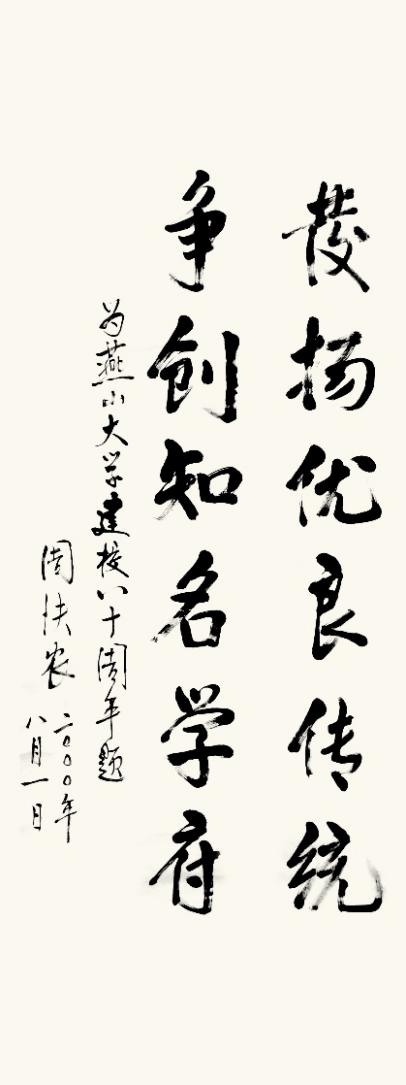 發扬优良传统
争创知名学府
为燕山大学建校八十周年题
周铁农
二〇〇〇年
八月一日